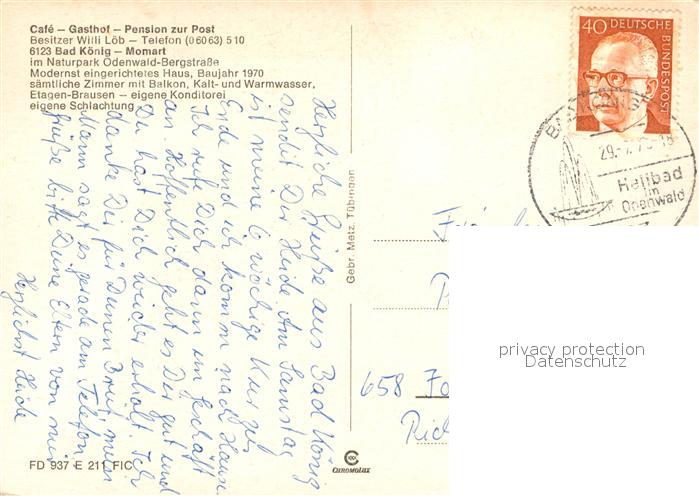 Café – Gasthof – Pension zur Post
Besitzer Willi Löb – Telefon (06063) 510
6123 Bad König – Momart
im Naturpark Odenwald-Bergstraße
Modernst eingerichtetes Haus, Baujahr 1970
sämtliche Zimmer mit Balkon, Kalt- und Warmwasser,
Etagen-Brausen – eigene Konditorei
eigene Schlachtung
Herzliche Grüße aus Bad König
sendet Dir Heide. Am Samstag
ist meine 6 wöchige Kur zu
Ende und ich komm nach Hause.
Ich rufe Dich dann im Geschäft
an. Hoffentlich geht es Dir gut und
Du hast Dich wieder erholt. Ich
danke Dir für Deinen Brief, mein
Mann sagt es gerade am Telefon
Grüße bitte Deine Eltern von mir
Herzlichst Heide
FD 937 E 211 FIC
Gebr. Metz, Tübingen
CHROMOLUX
40 DEUTSCHE
BUNDESPOST
BAD KÖNIG
Heilbad
im
Odenwald
658
privacy protection
Datenschutz